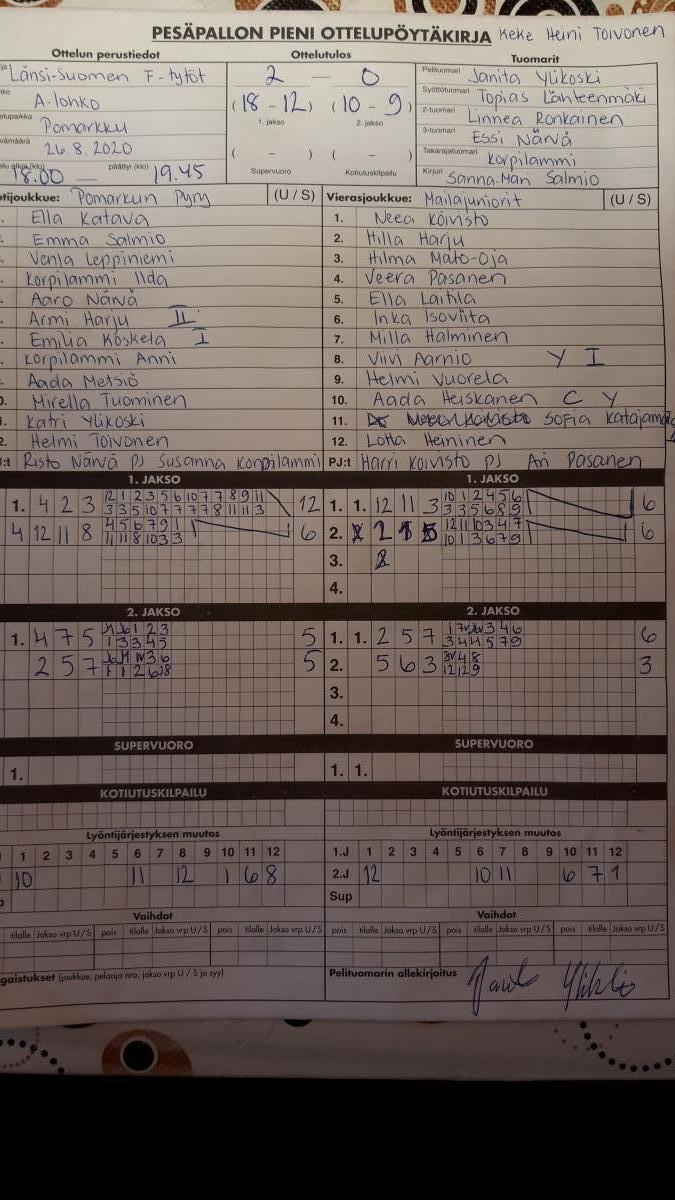 PESÄPALLON PIENI OTTELUPÖYTÄKIRJA Keke Heini Toivonen
Ottelun perustiedot Ottelutulos Tuomarit
Länsi-Suomen F-tytöt
A-lohko
Pomarkku
26.8.2020
18.00 — päättyi (klo) 19.45
2 — 0
(18-12) (10-9)
1. jakso 2. jakso
( - ) ( - )
Supervuoro Kotiutuskilpailu
Pelituomari Janita Ylikoski
Syöttötuomari Topias Lähteenmäki
2-tuomari Linnea Ronkainen
3-tuomari Essi Närvä
Takarajatuomari Korpilammi
Kirjuri Sanna-Mari Salmio
tijoukkue: Pomarkun Pyry (U / S)
Ella Katava
Emma Salmio
Venla Leppiniemi
Korpilammi Iida
Aaro Närvä
Armi Harju II
Emilia Koskela I
Korpilammi Anni
Aada Metsiö
Mirella Tuominen
Katri Ylikoski
Helmi Toivonen
:t Risto Närvä PJ Susanna Korpilammi
Vierasjoukkue: Mailajuniorit (U / S)
1. Neea Koivisto
2. Hilla Harju
3. Hilma Mato-Oja
4. Veera Pasanen
5. Ella Laitila
6. Inka Isoviita
7. Milla Halminen
8. Viivi Aarnio Y I
9. Helmi Vuorela
10. Aada Heiskanen C Y
11. Sofia
12. Lotta Heininen
PJ:t Harri Koivisto PJ Ari Pasanen
1. JAKSO 1. JAKSO
1. 4 2 3 12 1 2 3 5 6 10 7 7 8 9 11 12
3 3 5 10 7 7 7 8 11 11 3
4 12 11 8 4 5 6 7 9 1 6
11 11 8 10 3 3
1. 1. 12 11 3 10 1 2 4 5 6 6
3 3 5 6 8 9
2. 2 1 5 12 11 10 3 4 7 6
10 1 3 6 7 9
3. 2
4.
2. JAKSO 2. JAKSO
1. 4 7 5 1 2 3 5
1 3 3 4 5
2 5 7 3 6 5
1. 1. 2 5 7 3 4 6 6
3 4 4 5 7 9
2. 5 6 3 4 8 3
3.
4.
SUPERVUORO SUPERVUORO
1. 1. 1.
KOTIUTUSKILPAILU KOTIUTUSKILPAILU
Lyöntijärjestyksen muutos Lyöntijärjestyksen muutos
1 2 3 4 5 6 7 8 9 10 11 12 1.J 1 2 3 4 5 6 7 8 9 10 11 12
10 11 12 1 6 8 2.J 12 10 11 6 7 1
Sup
Vaihdot Vaihdot
tilalle Jakso vrp U/S pois tilalle Jakso vrp U/S pois tilalle Jakso vrp U/S pois tilalle Jakso vrp U/S pois tilalle Jakso vrp U/S
gaistukset (joukkue, pelaaja nro, jakso vrp U / S ja syy) Pelituomarin allekirjoitus